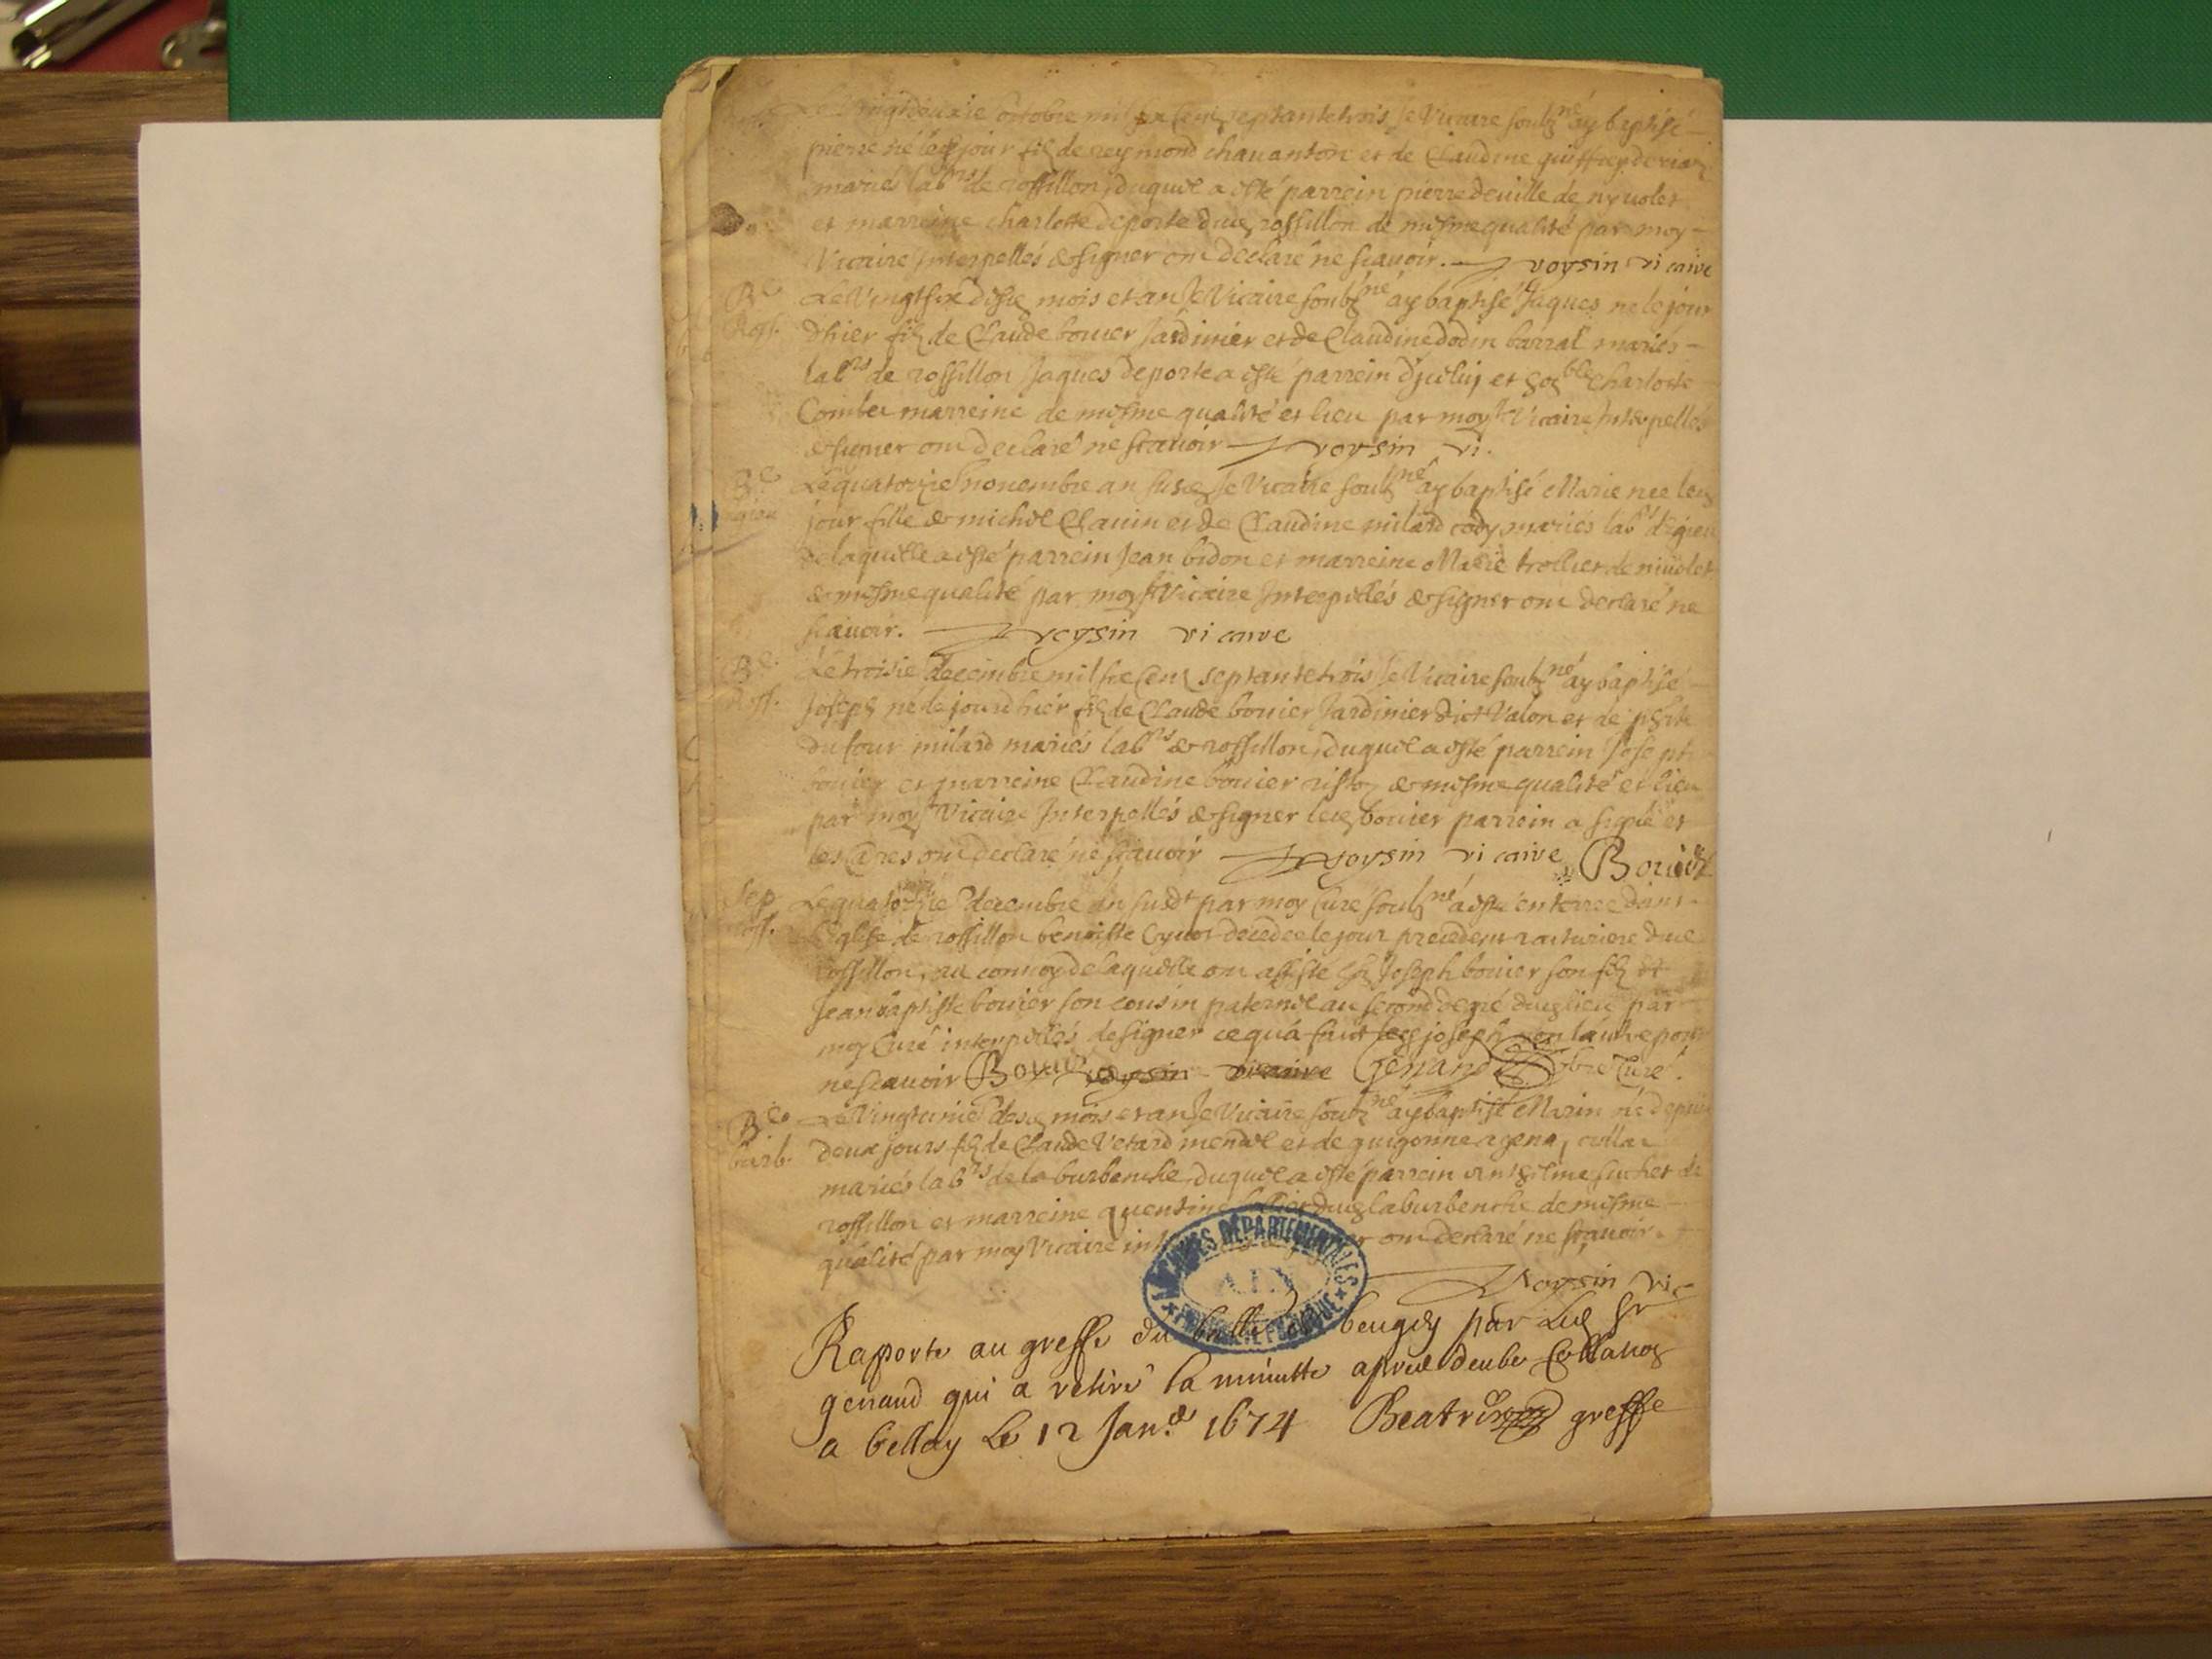 Le Vingtdeuxie octobre mil six cens septantetrois Je Vicaire soubzné ay baptisé
pierre né led jour filz de reymond chauanton et de Claudine
mariés labrs de rossillon, duquel a esté parrein pierre deuille de nyuolet
et marreine charlotte deporte dud rossillon de mesme qualité par moy
Vicaire Interpellés de signer ont declaré ne scauoir. voysin vicaire
Be Le Vingtsix desd mois et an Je Vicaire soubzné ay baptisé Jaques né le jour
Ross. dhier filz de Claude bouier Jardinier et de Claudine dodin barral mariés
labrs de rossillon Jaques deporte a esté parrein dyceluy et charlotte
marreine de mesme qualité et lieu par moyd Vicaire Interpellés
de signer ont declaré ne scauoir voysin vi.
Be Le quatorzie nouembre an susd Je Vicaire soubzné ay baptisé Marie nee led
jour fille de michel Clauin et de Claudine milard cody mariés labrs
de laquelle a esté parrein Jean bidon et marreine Marie trollier de niuolet
de mesme qualité par moyd Vicaire Interpellés de signer ont declaré ne
scauoir. voysin vicaire
Be Le troisie decembre mil six cens septantetrois Je Vicaire soubzné ay baptisé
Ross. Joseph né le jour dhier filz de Claude bouier Jardinier dict Valon et de
dufour milard mariés labrs de rossillon, duquel a esté parrein Joseph
bouier et marreine Claudine bouier de mesme qualité et lieu
par moyd Vicaire Interpellés de signer led bouier parrein a signé et
les ont declaré ne scauoir voysin vicaire Bouier
Sep Le quatorzie decembre an susdt par moy Curé soubzné a esté enterree dans
Ross. l'eglise de rossillon benoiste decedee le jour precedent dud
rossillon, au conuoy de laquelle ont assisté Joseph bouier son filz et
Jean baptiste bouier son cousin paternel au second degré dud lieu par
moy Curé interpellés de signer ce qua faict led joseph lautre pour
ne scauoir Bouier voysin vicaire Genand pbre Curé.
Be Le Vingtunie desd mois et an Je Vicaire soubzné ay baptisé Marin né depuis
burb. deux jours filz de Claude Vetard mendel et de guigonne
mariés labrs de la burbenche, duquel a esté parrein anthelme suchet de
rossillon et marreine quentine dud laburbenche de mesme
qualité par moy Vicaire ont declaré ne scauoir.
Voysin vic
ARCHIVES DÉPARTEMENTALES
AIN
Rapporté au greffe du beugey par Led Sr
genand qui a retiré la minutte
a belley le 12 Jan. 1674 Beatrix greffe